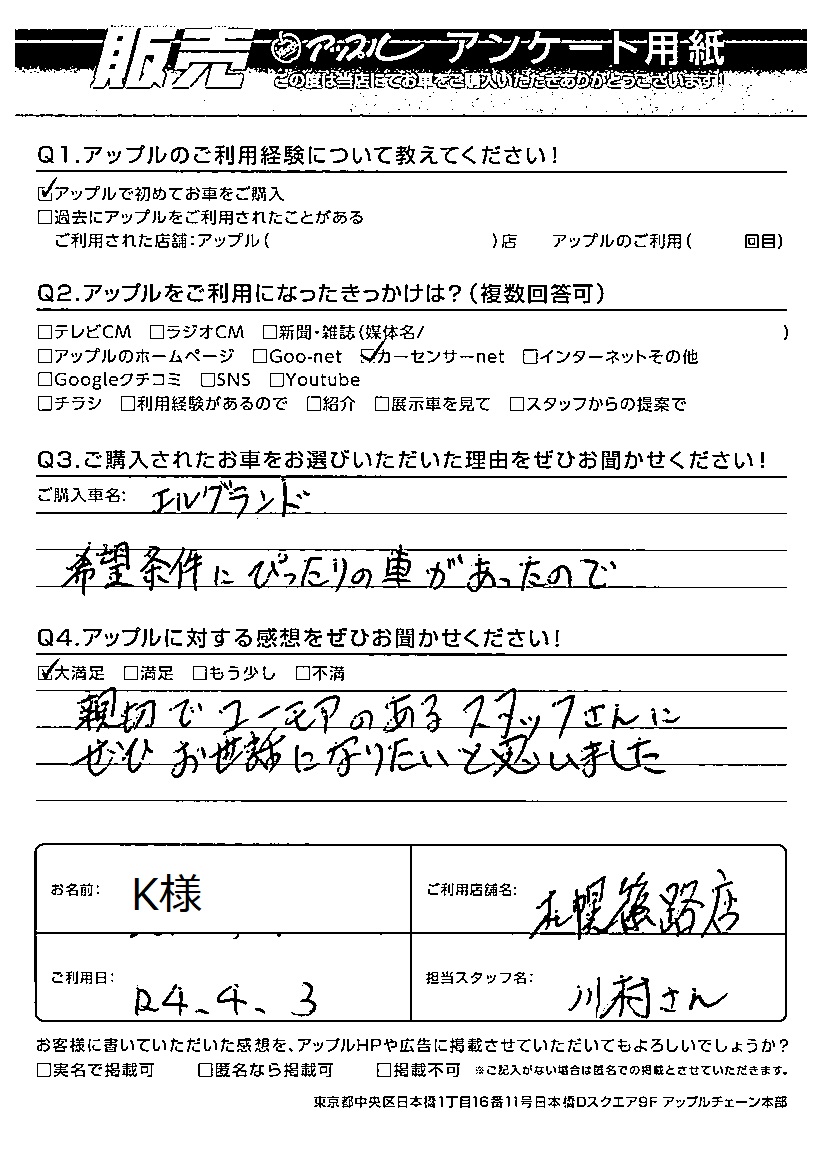 販売 アップル アンケート用紙
この度は当店にてお車をご購入いただきありがとうございます!
Q1.アップルのご利用経験について教えてください!
☑アップルで初めてお車をご購入
□過去にアップルをご利用されたことがある
ご利用された店舗:アップル( )店 アップルのご利用( 回目)
Q2.アップルをご利用になったきっかけは?(複数回答可)
□テレビCM □ラジオCM □新聞・雑誌(媒体名/ )
□アップルのホームページ □Goo-net ☑カーセンサーnet □インターネットその他
□Googleクチコミ □SNS □Youtube
□チラシ □利用経験があるので □紹介 □展示車を見て □スタッフからの提案で
Q3.ご購入されたお車をお選びいただいた理由をぜひお聞かせください!
ご購入車名: エルグランド
希望条件にぴったりの車があったので
Q4.アップルに対する感想をぜひお聞かせください!
☑大満足 □満足 □もう少し □不満
親切でユーモアのあるスタッフさんに
ぜひお世話になりたいと思いました
お名前: K様 ご利用店舗名: 札幌篠路店
ご利用日: R4、4、3 担当スタッフ名: 川村さん
お客様に書いていただいた感想を、アップルHPや広告に掲載させていただいてもよろしいでしょうか?
□実名で掲載可 □匿名なら掲載可 □掲載不可 ※ご記入がない場合は匿名での掲載とさせていただきます。
東京都中央区日本橋1丁目16番11号日本橋Dスクエア9F アップルチェーン本部